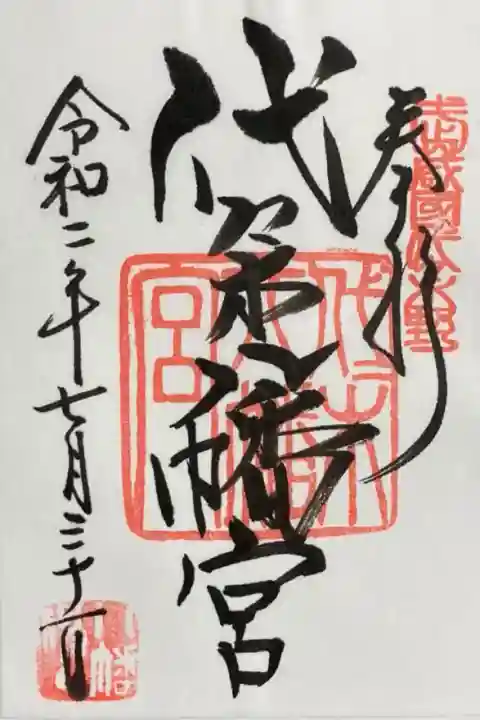 武蔵國代々木野
奉拝
代々木八幡宮
代々木八幡宮
令和二年七月三十一日